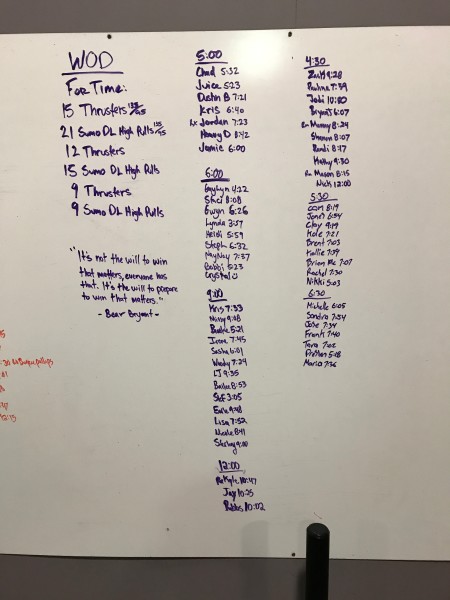 WOD
For Time:
15 Thrusters 135/95
21 Sumo DL High Pulls 135/95
12 Thrusters
15 Sumo DL High Pulls
9 Thrusters
9 Sumo DL High Pulls
"It's not the will to win
that matters, everyone has
that. It's the will to prepare
to win that matters."
- Bear Bryant -
5:00
Chad 5:32
Juice 5:23
Dustin B 7:21
Kris 6:40
Rx Jordan 7:23
Henry D 8:42
Jamie 6:00
6:00
4:22
Staci 8:08
Gwyn 6:26
Lynda 3:57
Heidi 5:59
Steph 6:32
MayMay 7:37
Bobbi 5:23
Crystal
9:00
Kris 7:33
Missy 9:08
5:21
Irene 7:45
Sasha 6:01
Wendy 7:24
LJ 9:35
Bailee 8:53
Stef 3:05
Erin 9:48
Lisa 7:52
Nicole 8:41
9:00
12:00
Kyle 10:47
Jay 10:25
10:02
4:30
Zach 9:28
Paulina 7:39
Jobi 10:80
Bryant 6:07
Rx Manny 8:24
Sharon 8:07
Randi 8:47
Kathy 9:30
Rx Mason 8:15
Nick 12:00
5:30
Cam 8:19
Jenn 6:54
Clay 9:19
Kole 7:21
Brent 7:03
Kallie 7:39
Brian Mc 7:07
Rachel 7:30
Nikki 5:03
6:30
Michele 6:05
Sandra 7:54
Jose 7:34
Frank 7:40
Tara 7:02
5:18
Mario 7:36